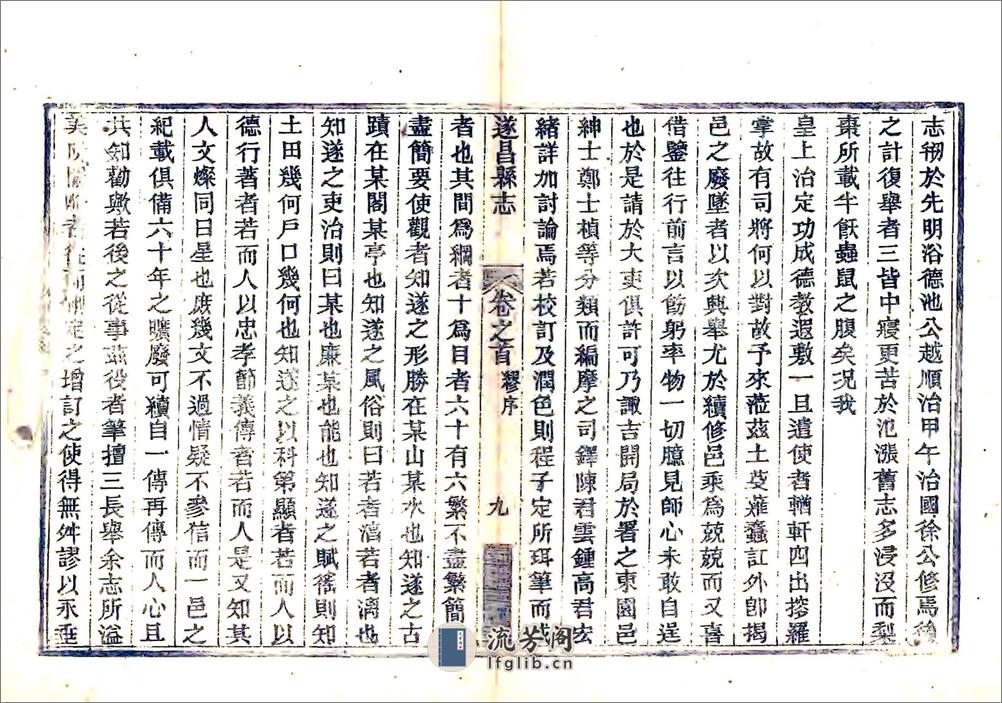 志刱於先明浴德池公越順治甲午治國徐公修焉後
之計復舉者三皆中寢更苦於氾漲舊志多浸沒而梨
棗所載牛飫蟲鼠之腹矣况我
皇上治定功成德教遐敷一旦遣使者輶軒四出採羅
掌故有司將何以對故予來蒞茲土芟薙蠹訌外卽揭
邑之廢墜者以次興舉尤於續修邑乘爲兢兢而又喜
借鑒往行前言以飭躬率物一切臆見師心未敢自逞
也於是請於大吏俱許可乃諏吉開局於署之東園邑
紳士鄭士楨等分類而編摩之司鐸陳君雲鍾高君宏
緒詳加討論焉若校訂及潤色則程子定所珥筆而成
遂昌縣志
卷之首
繆序
九
者也其間爲綱者十爲目者六十有六繁不盡繁簡不
盡簡要使觀者知遂之形勝在某山某水也知遂之古
蹟在某閣某亭也知遂之風俗則曰若者漓若者漓也
知遂之吏治則曰某也廉某也能也知遂之賦徭則知
土田幾何戶口幾何也知遂之以科第顯者若而人以
德行著者若而人以忠孝節義傳者若而人是又知其
人文燦同日星也庶幾文不過情疑不參信而一邑之
紀載俱備六十年之曠廢可續自一傳再傳而人心且
共知勸歟若後之從事茲役者筆擅三長舉余志所溢
美及闕略者從而釐定之增訂之使得無舛謬以永垂
流芳阁
lfglib.cn